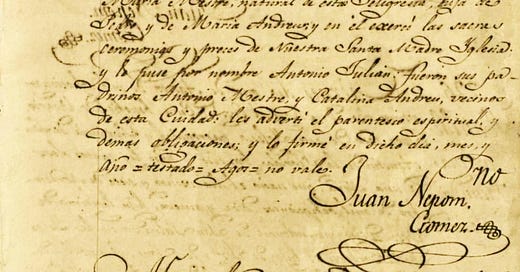 Maria Mestre, natural de esta Feligresia, hija de
y de Maria Andreu; y en el exercí las sacras
ceremonias y preces de Nuestra Santa Madre Iglesia
y le puse por nombre Antonio Julian: fueron sus pa-
drinos Antonio Mestre, y Catalina Andreu, vecinos
de esta Ciudad: les advertí el parentesco espiritual, y
demas obligaciones; y lo firmé en dicho dia, mes, y
Año = testado = Agos = no vale.
Juan Nepom.no
Gomez